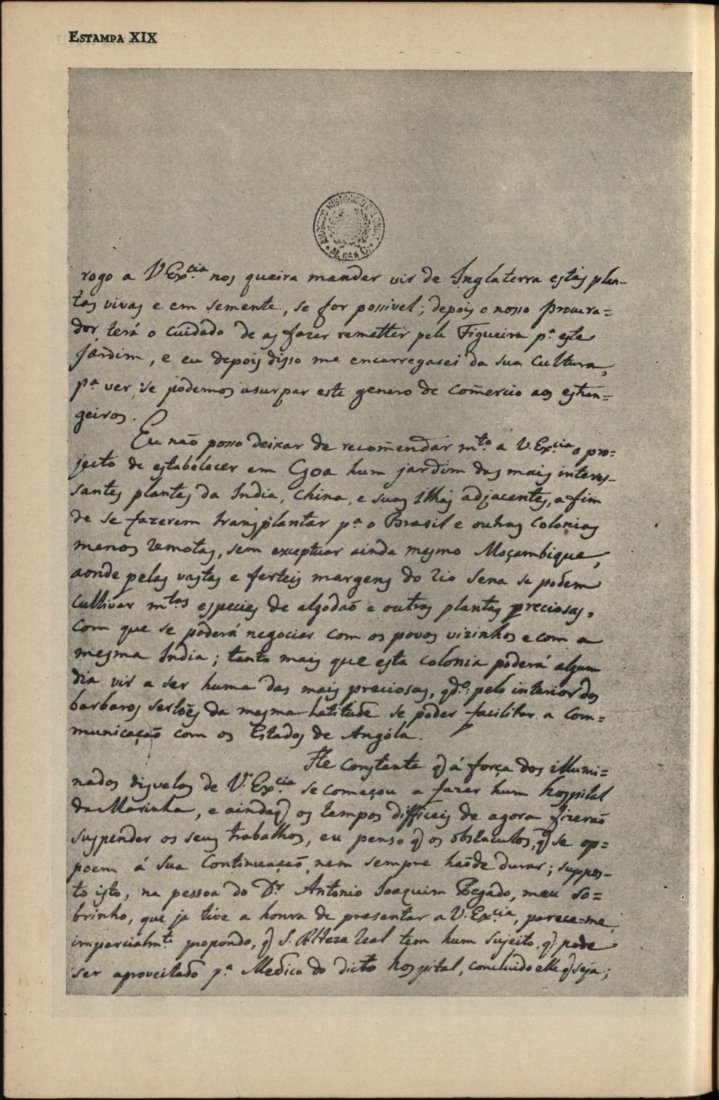 ESTAMPA XIX
rogo a V. Ex.cia nos queira mandar vir de Inglaterra estas plan-
tas vivas e em semente, se for possivel; depois o nosso procura=
dor terá o cuidado de as fazer remetter pela Figueira p.a este
Jardim, e eu depois disso me encarregarei da sua cultura,
p.a ver, se podemos usurpar este genero de comercio aos estran=
geiros.
Eu não posso deixar de recomendar m.to a V. Ex.cia o pro=
jeito de estabelecer em Goa hum jardim das mais interes-
santes plantas da India, China, e suas Ilhas adjacentes, a fim
de se fazerem transplantar p.a o Brasil e outras Colonias
menos remotas, sem exceptuar ainda mesmo Moçambique,
aonde pelas vastas e ferteis margens do rio Sena se podem
cultivar m.tas especies de algodão e outras plantas preciosas,
com que se poderá negociar com os povos vizinhos e com a
mesma India; tanto mais que esta colonia poderá algum
dia vir a ser huma das mais preciosas, qd.o pelo interior dos
barbaros sertões da mesma latitude se poder facilitar a com=
municação com os Estados de Angóla.
He constante q á força dos illumi=
nados disvelos de V. Ex.cia se começou a fazer hum hospital
da Marinha, e ainda q os tempos difficeis de agora fizerão
suspender os seus trabalhos, eu penso q os obstaculos, q se op=
poem á sua Continuação, nem sempre hãode durar; suppos-
to isto, na pessoa do D.r Antonio Joaquim Pegado, meu so=
brinho, que ja tive a honra de presentar a V. Ex.cia, parece-me,
imparcialm.te propondo, q S. Alteza Real tem hum sujeito, q póde
ser aproveitado p.a Medico do dicto hospital, concluido elle q seja;